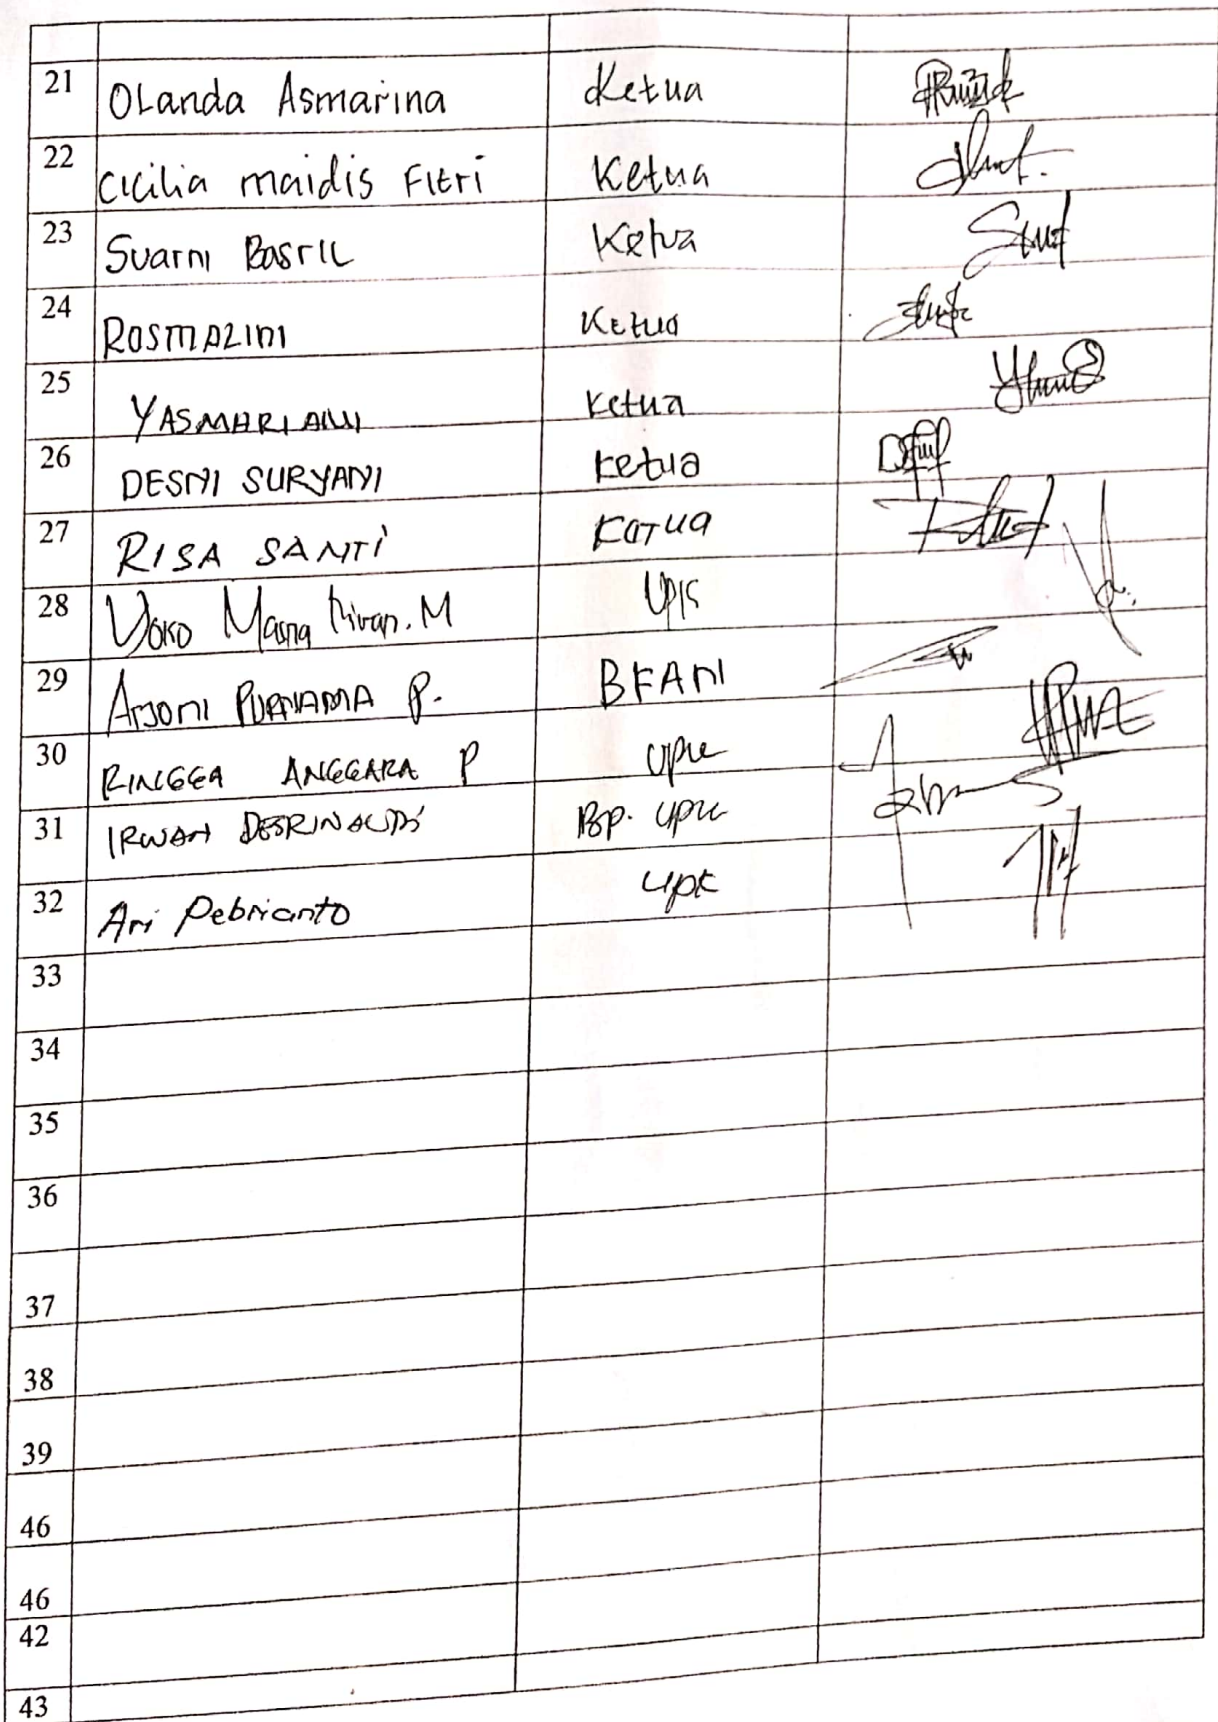 21 Olanda Asmarina Ketua
22 Cicilia maidis Fitri Ketua
23 Suarni Basril Ketua
24 ROSMALINI Ketua
25 YASMARIANI Ketua
26 DESNI SURYANI Ketua
27 RISA SANTI KETUA
28 Yoko M UPK
29 Arjoni PURNAMA P. BKAN
30 RINGGA ANGGARA P UPK
31 IRWAN DESRINALDI BP. UPK
32 Ari Pebrianto UPK
33
34
35
36
37
38
39
46
46
42
43